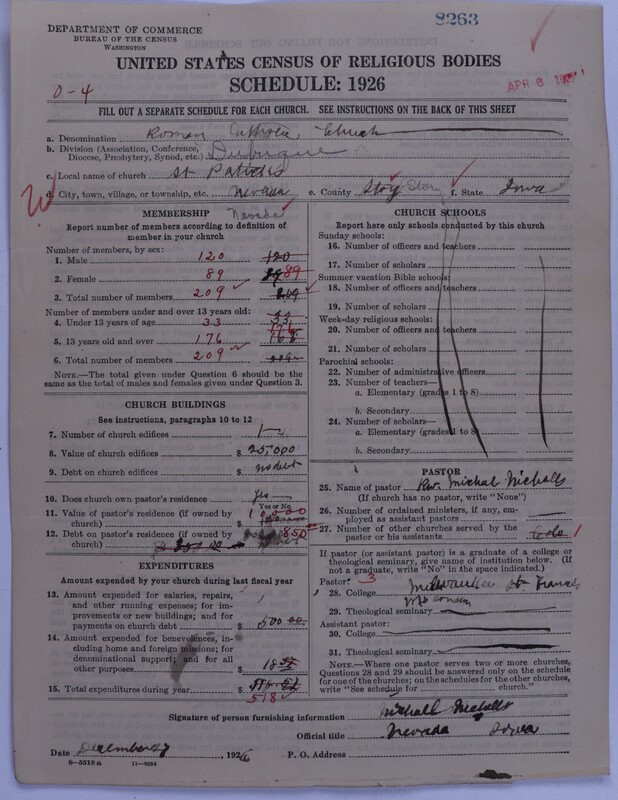 8263
DEPARTMENT OF COMMERCE
BUREAU OF THE CENSUS
WASHINGTON
UNITED STATES CENSUS OF RELIGIOUS BODIES
SCHEDULE: 1926
APR 8
0-4
FILL OUT A SEPARATE SCHEDULE FOR EACH CHURCH. SEE INSTRUCTIONS ON THE BACK OF THIS SHEET
a. Denomination Roman Catholic Church
b. Division (Association, Conference,
Diocese, Presbytery, Synod, etc.) Dubuque
c. Local name of church St Patricks
d. City, town, village, or township, etc. Nevada e. County Story Story f. State Iowa
Nevada
MEMBERSHIP
Report number of members according to definition of
member in your church
Number of members, by sex:
1. Male 120 120
2. Female 89 89
3. Total number of members 209 209
Number of members under and over 13 years old:
4. Under 13 years of age 33 33
5. 13 years old and over 176 176
6. Total number of members 209 209
NOTE.—The total given under Question 6 should be
the same as the total of males and females given under Question 3.
CHURCH BUILDINGS
See instructions, paragraphs 10 to 12
7. Number of church edifices 1
8. Value of church edifices $ 25000
9. Debt on church edifices $ no debt
10. Does church own pastor's residence yes
Yes or No
11. Value of pastor's residence (if owned by
church) $ 10,000
12. Debt on pastor's residence (if owned by
church) $ 850
EXPENDITURES
Amount expended by your church during last fiscal year
13. Amount expended for salaries, repairs,
and other running expenses; for im-
provements or new buildings; and for
payments on church debt $ 500 00
14. Amount expended for benevolences, in-
cluding home and foreign missions; for
denominational support; and for all
other purposes $ 18
15. Total expenditures during year $ 518
CHURCH SCHOOLS
Report here only schools conducted by this church
Sunday schools:
16. Number of officers and teachers
17. Number of scholars
Summer vacation Bible schools:
18. Number of officers and teachers
19. Number of scholars
Week-day religious schools:
20. Number of officers and teachers
21. Number of scholars
Parochial schools:
22. Number of administrative officers
23. Number of teachers—
a. Elementary (grades 1 to 8)
b. Secondary
24. Number of scholars—
a. Elementary (grades 1 to 8)
b. Secondary
PASTOR
25. Name of pastor Rev. Michal Nicholls
(If church has no pastor, write "None")
26. Number of ordained ministers, if any, em-
ployed as assistant pastors
27. Number of other churches served by the
pastor or his assistants Colo 1
If pastor (or assistant pastor) is a graduate of a college or
theological seminary, give name of institution below. (If
not a graduate, write "No" in the space indicated.)
Pastor: 3
28. College Milwaukee St Francis
Wisconsin
29. Theological seminary
Assistant pastor:
30. College
31. Theological seminary
NOTE.—Where one pastor serves two or more churches,
Questions 28 and 29 should be answered only on the schedule
for one of the churches; on the schedules for the other churches,
write "See schedule for church."
Signature of person furnishing information Michall Nicholls
Official title Nevada Iowa
Date December 27, 1926 P. O. Address
8—5318a 11—9564